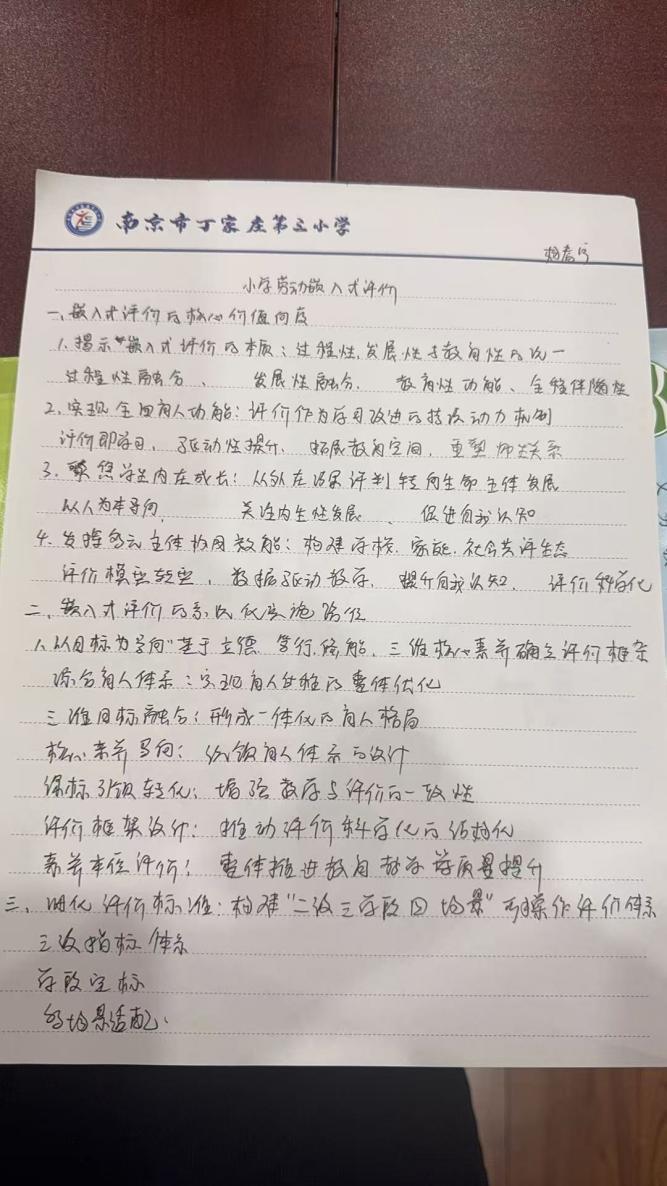 南京市丁家庄第三小学
小学劳动嵌入式评价
一、嵌入式评价的核心价值向度
1. 揭示嵌入式评价的本质：过程性、发展性与教育性的统一
过程性融合、 发展性融合、 教育性功能、全程伴随性
2. 实现全面育人功能：评价作为学习改进的持续动力机制
评价即学习、驱动性提升、拓展教育空间、重塑师生关系
3. 聚焦学生内在成长：从外在结果评判转向生命主体发展
以人为本导向、 关注内生性发展、 促进自我认知
4. 发挥多元主体协同效能：构建学校、家庭、社会共评生态
评价模型转型、数据驱动教学、提升自我认知、评价科学化
二、嵌入式评价的系统化实施路径
1. 以目标为导向"基于立德 笃行 能、三维核心素养确立评价框架
综合育人体系：实现育人过程的整体优化
三维目标融合：形成一体化的育人格局
核心素养导向：统领育人体系的设计
课标引领转化：增强教学与评价的一致性
评价框架设计：推动评价科学化的结构化
素养本位评价：整体推进教育教学质量提升
三、细化评价标准：构建"二级三学段四场景"可操作评价体系
三级指标体系
学段定标
场景适配